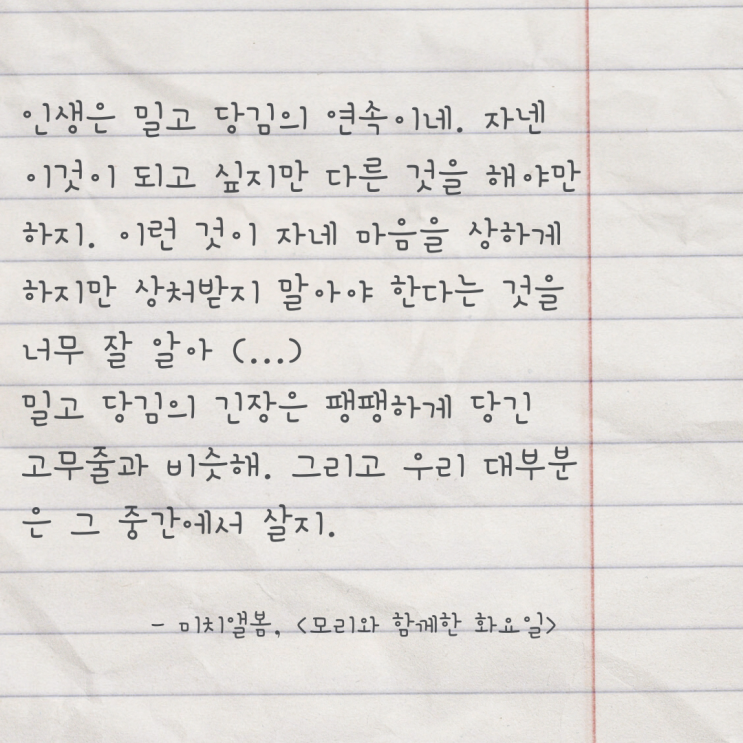 인생은 밀고 당김의 연속이네. 자넨
이것이 되고 싶지만 다른 것을 해야만
하지. 이런 것이 자네 마음을 상하게
하지만 상처받지 말아야 한다는 것을
너무 잘 알아 (...)
밀고 당김의 긴장은 팽팽하게 당긴
고무줄과 비슷해. 그리고 우리 대부분
은 그 중간에서 살지.
- 미치앨봄, <모리와 함께한 화요일>